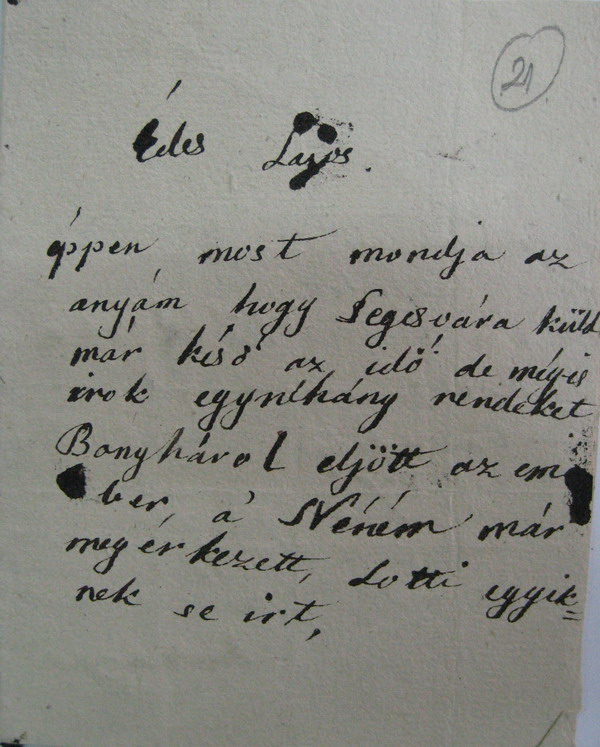 21
Édes Lajos.
éppen most mondja az
anyám hogy Segesvára küld
már késő az idő de mégis
irok egynéhány rendeket
Bonyhárol eljött az em
ber, a' Néném már
megérkezett, Lotti egyik=
nek se irt,